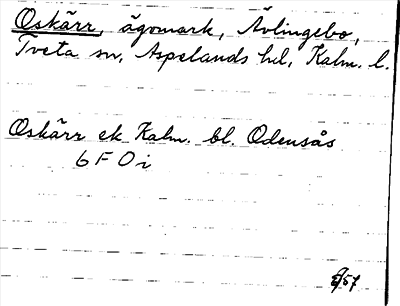 Oskärr, ägomark, Ävlingebo,
Tveta sn, Aspelands hd, Kalm. l.
Oskärr ek Kalm. bl. Odensås
6 F O i